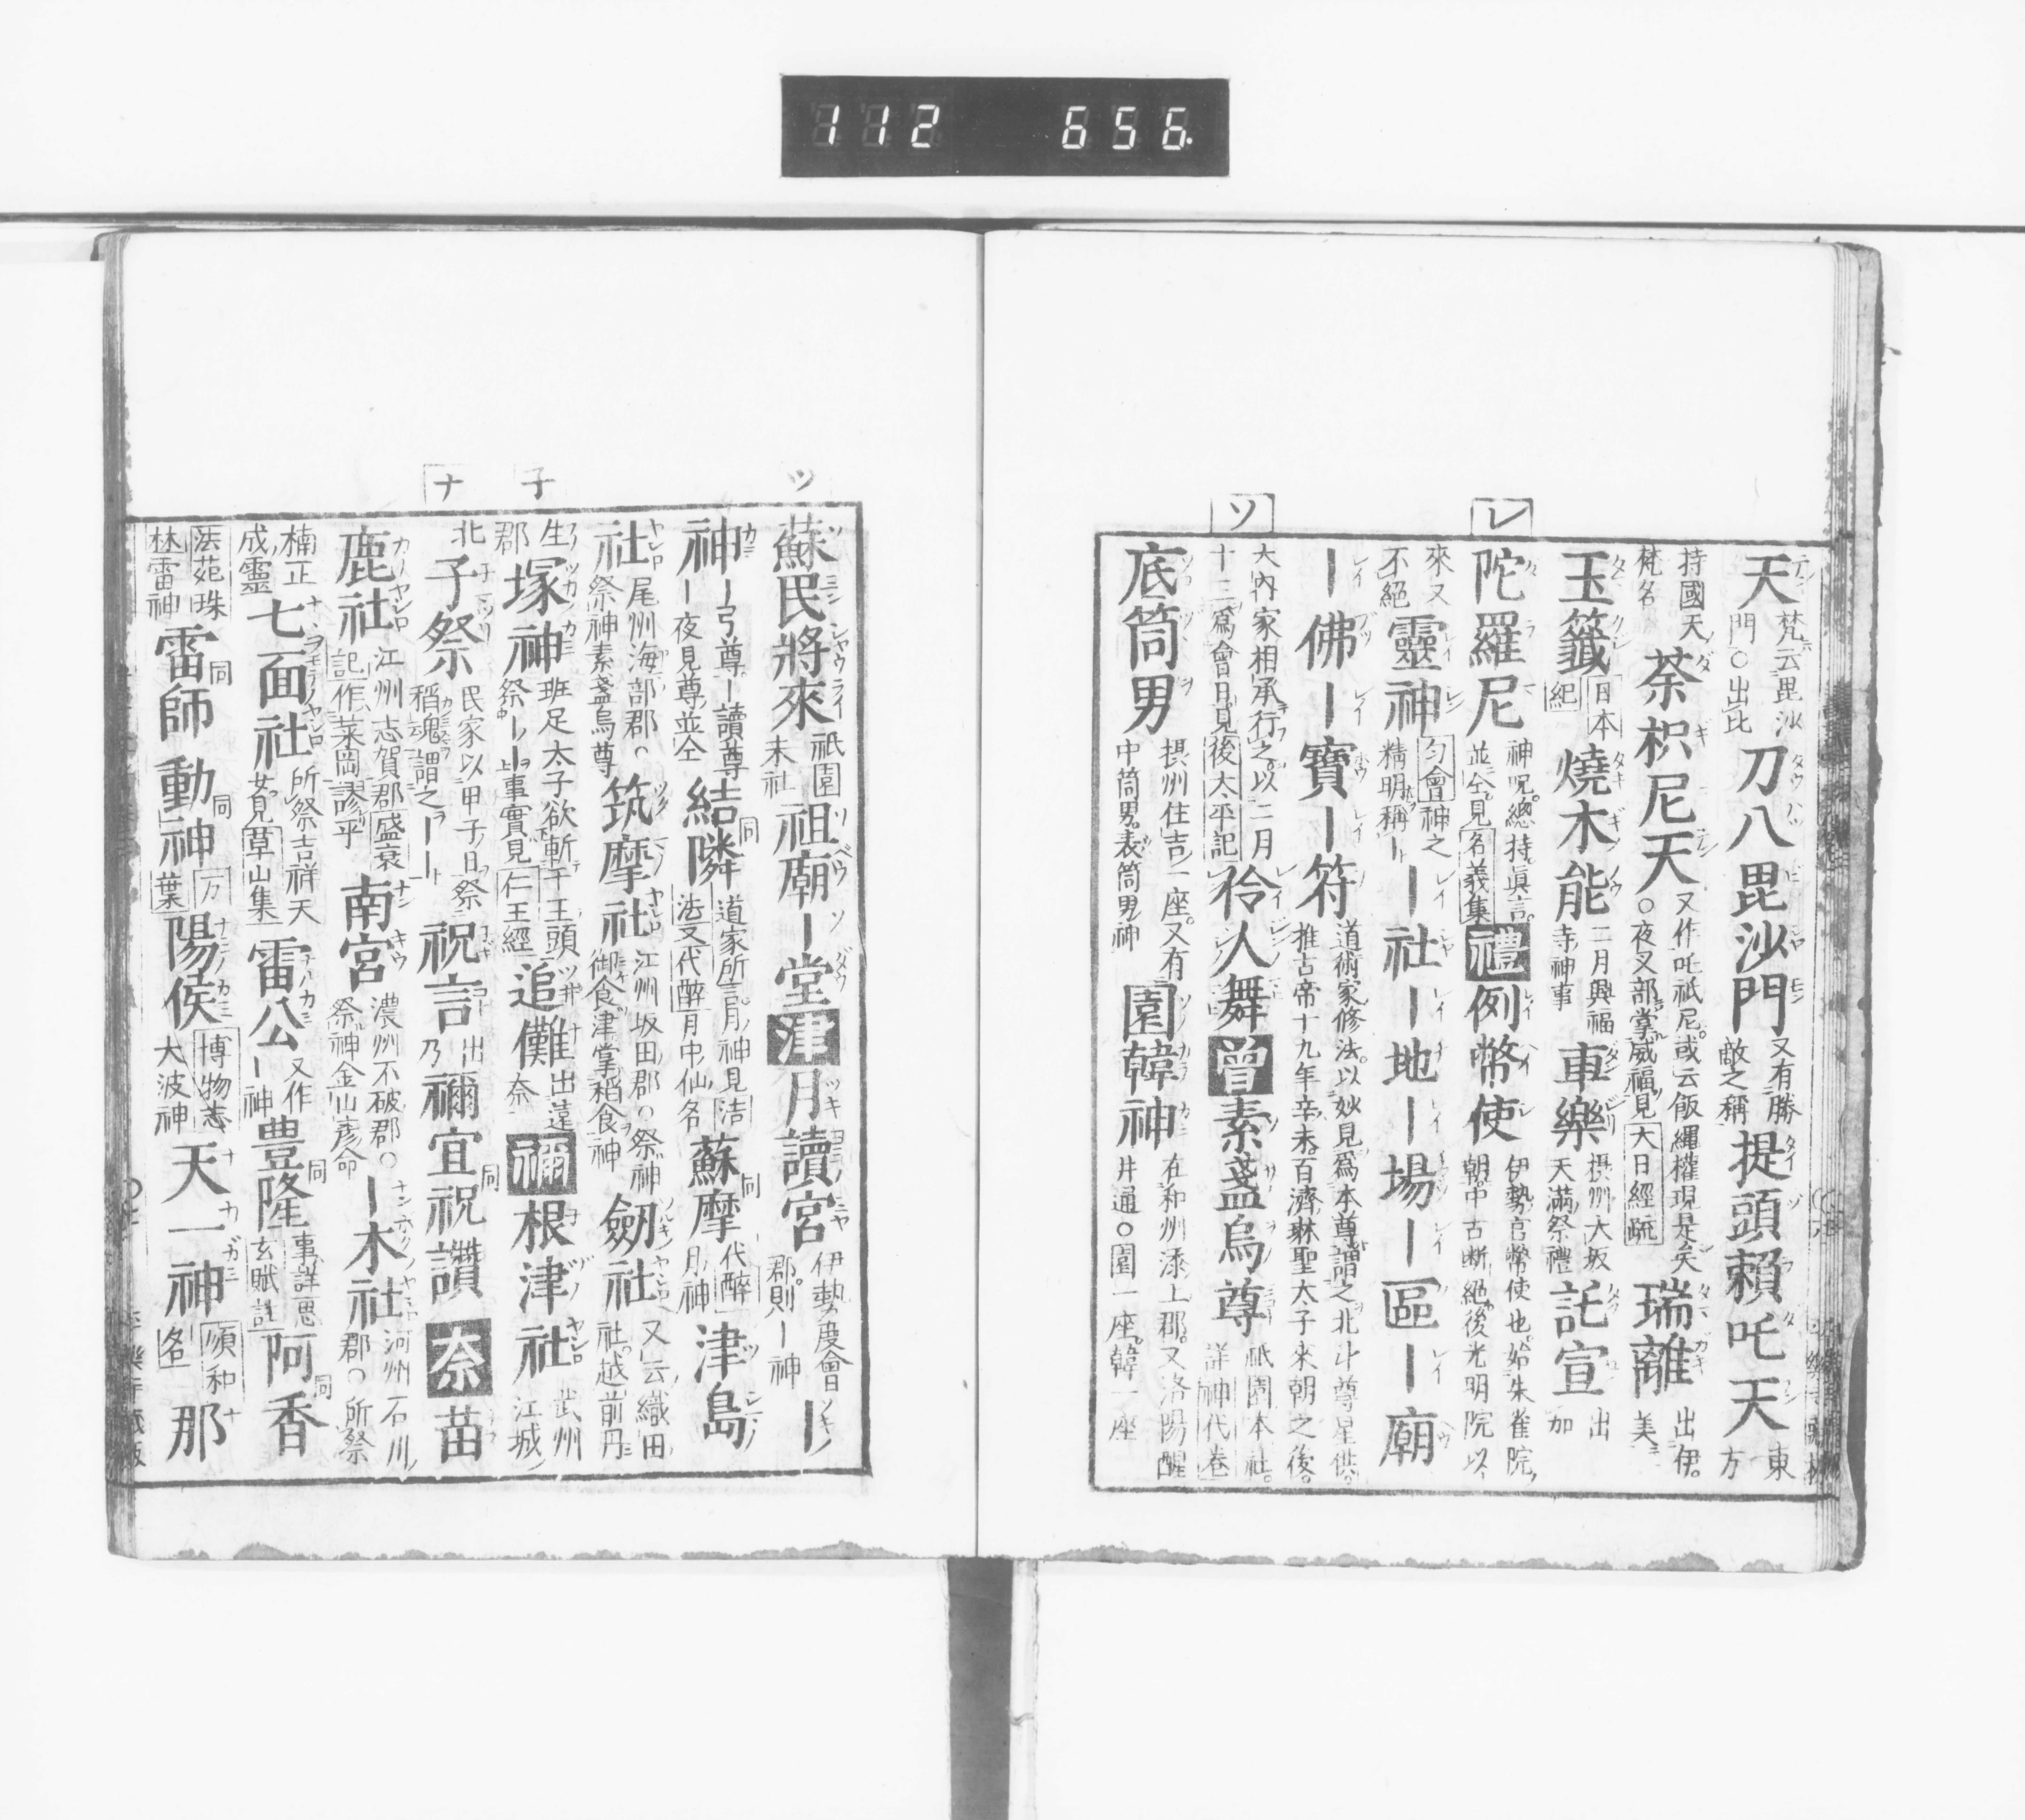 112 656
レ
ソ
天 梵云毘沙門○出毘 刀八毘沙門 又有勝敵之稱 提頭賴吒天 東方
持國天梵名 荼枳尼天 又作吒祇尼。或云飯縄權現是矣○夜叉部掌威福見大日經疏 瑞離 出伊。美
玉籤 日本紀 燒木能 二月興福寺神事 車樂 摂州大坂天滿祭禮 託宣 出加
陀羅尼 神呪。總持。眞言。並仝。見名義集 禮 例幣使 伊勢官幣使也。始朱雀院朝。中古断絕。後光明院以
來又不絕 靈神 匀會神之精明稱 ー社 ー地 ー場 ー區 ー廟
ー佛 ー寶 ー符 道術家修法。以妙見爲本尊謂之北斗尊星供。推古帝十九年辛未。百濟琳聖太子來朝之後。
大內家相承行之。以二月十三爲會日見後太平記 伶人舞 曾 素盞烏尊 祇園本社。詳神代卷
底筒男 摂州住吉一座。又有中筒男。表筒男神 園韓神 在和州添上郡。又洛陽醒井通。○園一座。韓一座
ツ
子
ナ
蘇民將來 祇園末社 祖廟 ー堂 津 月讀宮 伊勢度會郡。則ー神 ー
神 ー弓尊。ー讀尊ー夜見尊並仝 結隣 道家所言。月神見浩法又代醉月中仙名 蘇摩 代醉月神 津島
社 尾州海部郡。祭神素盞烏尊 筑摩社 江州坂田郡○祭神御食津掌稻食神 劒社 又云織田社。越前丹
生郡 塚神 班足太子欲斬千王頭祭ーー事實見仁王經 追儺 出遠奈 禰 根津社 武州江城
北 子祭 民家以甲子日祭稻魂謂之ーー 祝言 出乃 禰宜 祝讚 奈 苗
鹿社 江州志賀郡盛衰記作菜岡謬乎 南宮 濃州不破郡○祭神金山彥命 ー木社 河州石川郡○所祭
楠正成靈 七面社 所祭吉祥天女見草山集 雷公 又作ー神 豊隆 事詳思玄賦註 阿香
法苑珠林雷神 雷師 動神 万葉 陽侯 博物志大波神 天一神 順和名 那